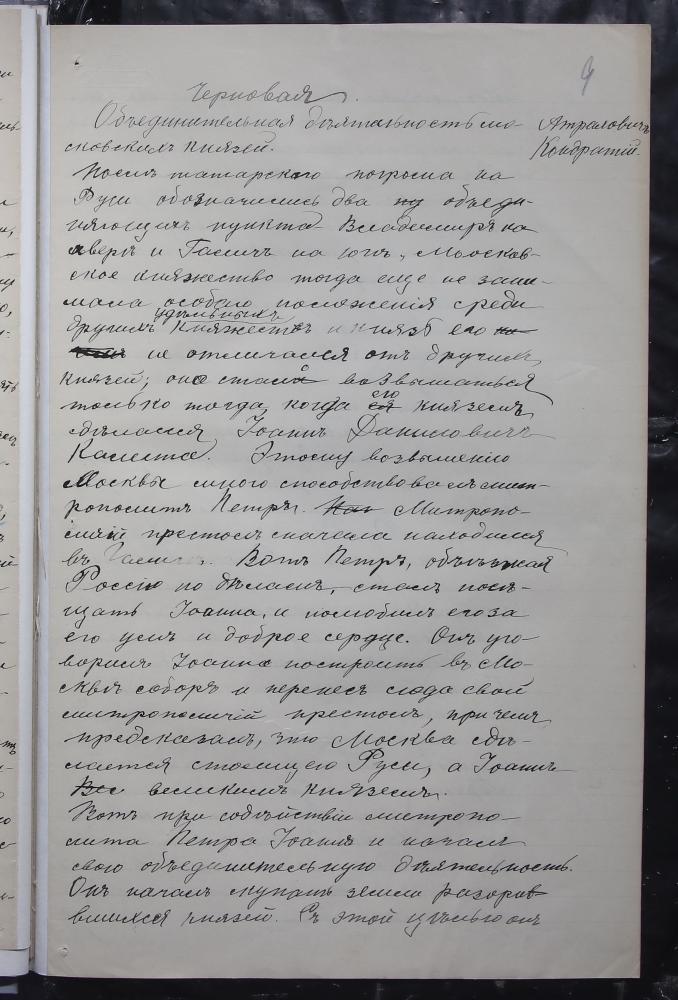 9
Черновая.
Объединительная дѣятельность мо-
сковскихъ князей.
Атраховичъ
Кондратій.
Послѣ татарскаго погрома на
Руси обозначились два объеди-
няющихъ пункта Владимиръ на
сѣверѣ и Галичъ на югѣ, Московс-
ское княжество тогда еще не зани-
мала особаго положенія среди
другихъ удѣльныхъ княжествъ и князь его
не отличался отъ другихъ
князей; оно стало возвышаться
только тогда, когда его княземъ
сдѣлался Іоаннъ Даниловичъ
Калита. Этому возвышенію
Москвы много способствовалъ мит-
рополитъ Петръ. Митропо-
личій престолъ сначала находился
въ Вотъ Петръ, объѣзжая
Россію по дѣламъ, сталъ посѣ-
щать Іоанна, и полюбилъ его за
его умъ и доброе сердце. Онъ уго-
ворилъ Іоанна построить въ Мо-
сквѣ соборъ и перенесъ сюда свой
митрополичій престолъ, причемъ
предсказалъ, что Москва сдѣ-
лается столицею Руси, а Іоаннъ
великимъ княземъ.
Вотъ при содѣйствіи митропо-
лита Петра Іоаннъ и началъ
свою объединительную дѣятельность.
Онъ началъ скупать земли разорив-
вшихся князей. Съ этой цѣлью онъ